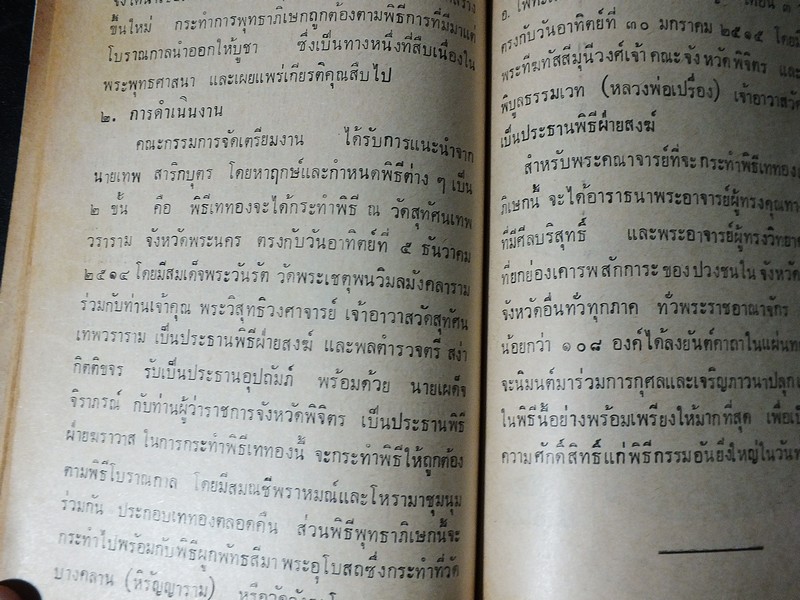 ขึ้นใหม่ กระทำการพุทธาภิเษกถูกต้องตามพิธีการที่มีมาแต่
โบราณกาลนำออกให้บูชา ซึ่งเป็นทางหนึ่งที่สืบเนื่องใน
พระพุทธศาสนา และเผยแพร่เกียรติคุณสืบไป
๒. การดำเนินงาน
คณะกรรมการจัดเตรียมงาน ได้รับการแนะนำจาก
นายเทพ สาริกบุตร โดยหาฤกษ์และกำหนดพิธีต่าง ๆ เป็น
๒ ขั้น คือ พิธีเททองจะได้กระทำพิธี ณ วัดสุทัศนเทพ
วราราม จังหวัดพระนคร ตรงกับวันอาทิตย์ที่ ๕ ธันวาคม
๒๕๑๔ โดยมีสมเด็จพระวันรัต วัดพระเชตุพนวิมลมังคลาราม
ร่วมกับท่านเจ้าคุณ พระวิสุทธิวงศาจารย์ เจ้าอาวาสวัดสุทัศน
เทพวราราม เป็นประธานพิธีฝ่ายสงฆ์ และพลตำรวจตรี สง่า
กิตติขจร รับเป็นประธานอุปถัมภ์ พร้อมด้วย นายเผด็จ
จิราภรณ์ กับท่านผู้ว่าราชการจังหวัดพิจิตร เป็นประธานพิธี
ฝ่ายฆราวาส ในการกระทำพิธีเททองนี้ จะกระทำพิธีให้ถูกต้อง
ตามพิธีโบราณกาล โดยมีสมณชีพราหมณ์และโหรามาชุมนุม
ร่วมกัน ประกอบเททองตลอดคืน ส่วนพิธีพุทธาภิเษกนี้จะ
กระทำไปพร้อมกับพิธีผูกพัทธสีมา พระอุโบสถซึ่งกระทำที่วัด
บางคลาน (หิรัญญาราม)
ตรงกับวันอาทิตย์ที่ ๓๐ มกราคม ๒๕๑๕ โดยมี
พระทีฆทัสสีมุนีวงศ์เจ้า คณะจังหวัดพิจิตร และ
พิบูลธรรมเวท (หลวงพ่อเปรื่อง) เจ้าอาวาสวัด
เป็นประธานพิธีฝ่ายสงฆ์
สำหรับพระคณาจารย์ที่จะกระทำพิธีเททอง
ภิเษกนี้ จะได้อาราธนาพระอาจารย์ผู้ทรงคุณทาง
ที่มีศีลบริสุทธิ์ และพระอาจารย์ผู้ทรงวิทยา
ที่ยกย่องเคารพ สักการะ ของปวงชนใน จังหวัด
จังหวัดอื่นทั่วทุกภาค ทั่วพระราชอาณาจักร
น้อยกว่า ๑๐๘ องค์ได้ลงยันต์คาถาในแผ่นทอง
จะนิมนต์มาร่วมการกุศลและเจริญภาวนาปลุก
ในพิธีนี้อย่างพร้อมเพรียงให้มากที่สุด เพื่อเป็น
ความศักดิ์สิทธิ์แก่พิธีกรรมอันยิ่งใหญ่ในวัน